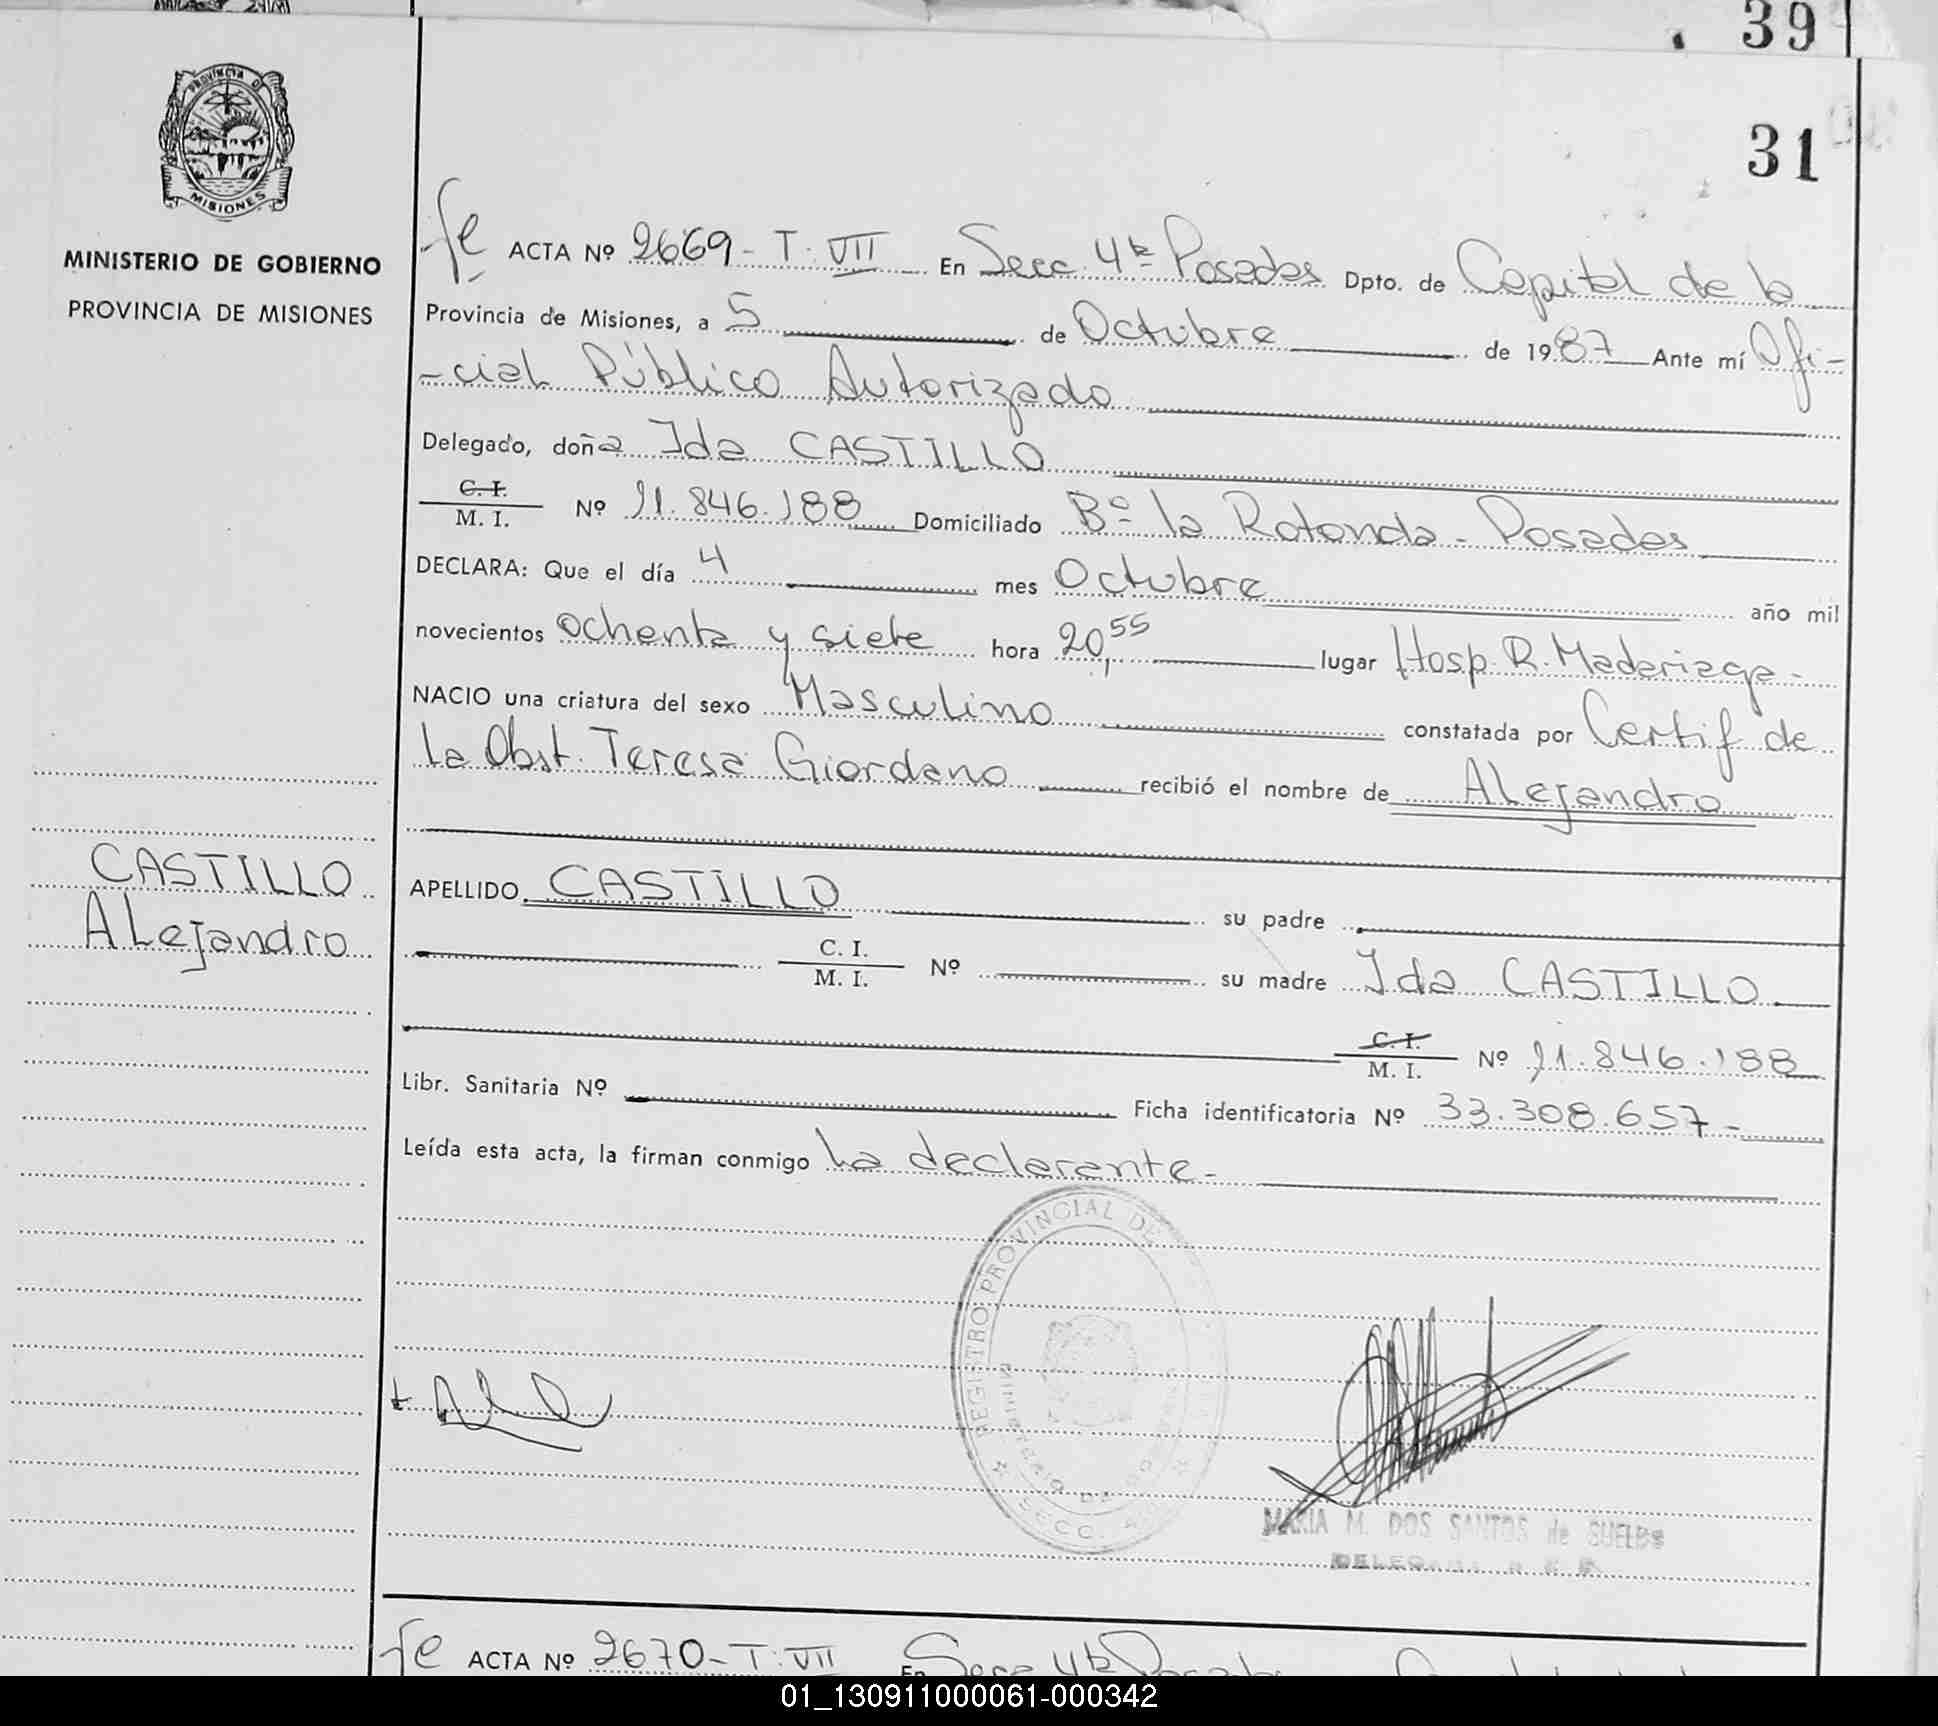 39
31
PROVINCIA DE
MISIONES
MINISTERIO DE GOBIERNO
PROVINCIA DE MISIONES
CASTILLO
ALejandro
fe ACTA Nº 2669-T.VII En Secc. 4ta Posadas Dpto. de Capital de la
Provincia de Misiones, a 5 de Octubre de 1987 Ante mí Ofi-
-cial Público Autorizado
Delegado, doña Ida CASTILLO
C. I.
M. I. Nº 11.846.188 Domiciliado Bº la Rotonda - Posadas
DECLARA: Que el día 4 mes Octubre año mil
novecientos ochenta y siete hora 20,55 lugar Hosp. R. Madariaga-
NACIO una criatura del sexo Masculino constatada por Certif de
la Obst. Teresa Giordano recibió el nombre de ALejandro
APELLIDO CASTILLO su padre
C. I.
M. I. Nº su madre Ida CASTILLO
C. I.
M. I. Nº 11.846.188
Libr. Sanitaria Nº Ficha identificatoria Nº 33.308.657-
Leída esta acta, la firman conmigo la declarante-
REGISTRO PROVINCIAL DE
MINISTERIO DE
SECC. 4
MARIA M. DOS SANTOS de
fe ACTA Nº 2670-T.VII En Secc 4ta Posadas
01_130911000061-000342